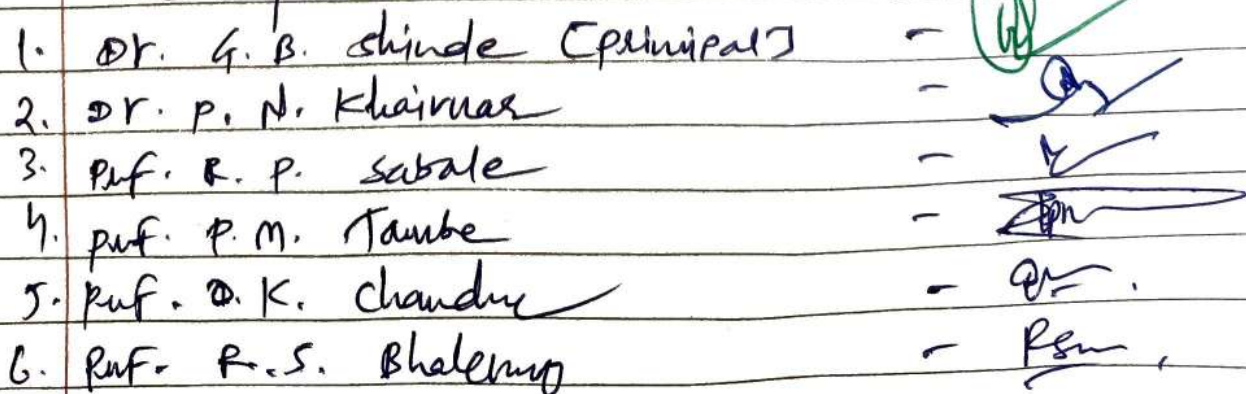 1. Dr. G. B. Shinde [Principal] -
2. Dr. P. N. Khairnar -
3. Prof. R. P. Sabale -
4. Prof. P. M. Tambe -
5. Prof. D. K. Chandre -
6. Prof. R. S. Bhalerao -